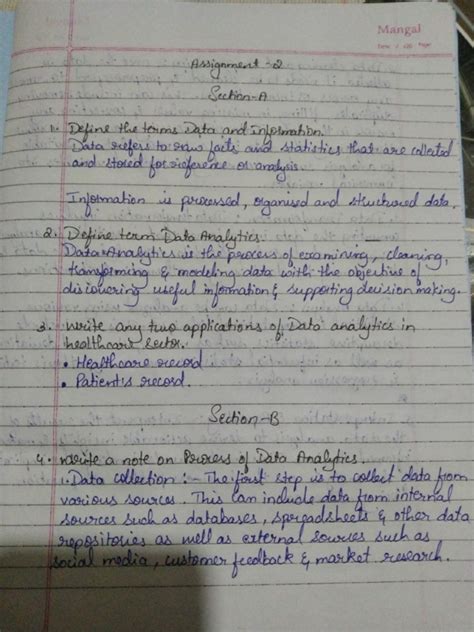 Mangal
Assignment-2
Section-A
1. Define the terms Data and Information.
Data refers to raw facts and statistics that are collected
and stored for reference or analysis
Information is processed, organised and structured data.
2. Define term Data Analytics.
Data Analytics is the process of examining, cleaning,
transforming & modeling data with the objective of
discovering useful information & supporting decision making.
3. write any two applications of Data analytics in
healthcare sector.
• Healthcare record.
• Patient's record.
Section-B
4. write a note on Process of Data Analytics.
1. Data collection :- The first step is to collect data from
various sources. This can include data from internal
sources such as databases, spreadsheets & other data
repositories as well as external sources such as
social media, customer feedback & market research.